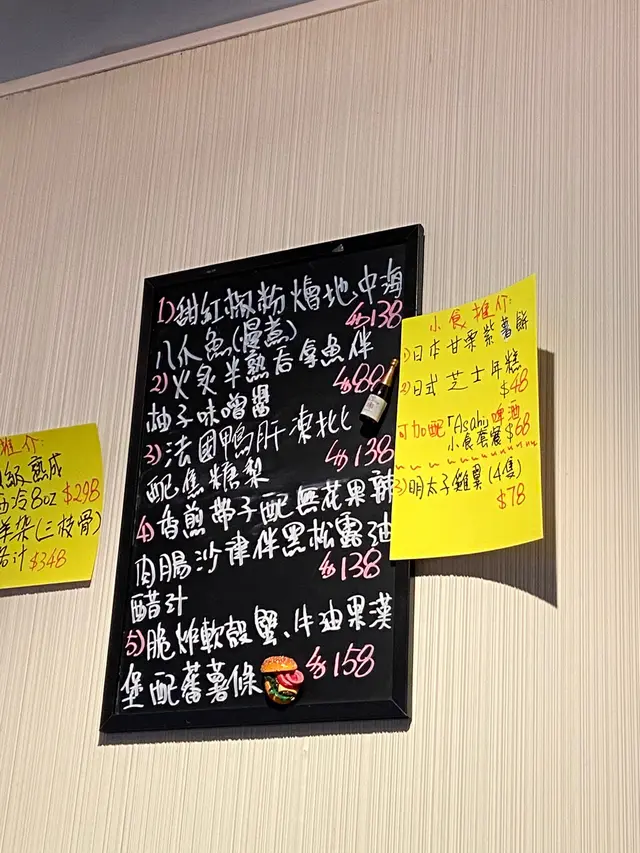 1)甜紅椒粉燴地中海
八爪魚(慢煮) $138
2)火炙半熟吞拿魚伴
柚子味噌醬 $88
3)法國鴨肝凍批
配焦糖梨 $138
4)香煎帶子配無花果辣
肉腸沙律伴黑松露油
醋汁 $138
5)脆炸軟殼蟹、牛油果漢
堡配蕃薯條 $158
小食推介:
1)日本甘栗紫薯餅
2)日式芝士年糕
$48
可加配「Asahi」啤酒
小食套餐 $68
3)明太子雞翼(4隻)
$78
推介:
級熟成
西冷8oz $298
羊架(三枝骨)
$348